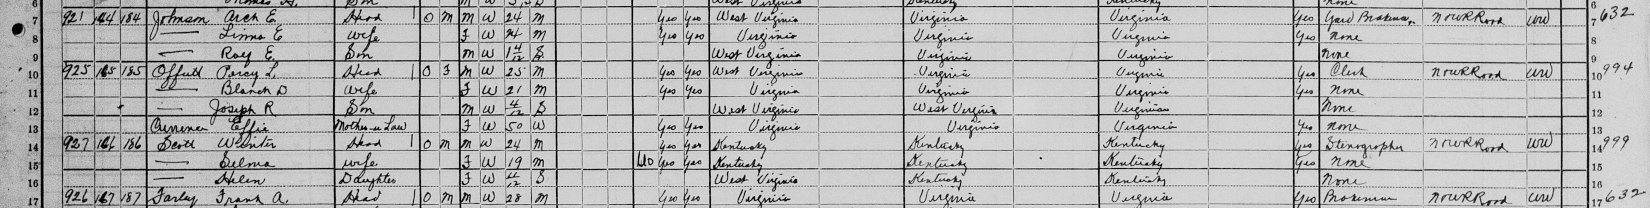 6 Thomas H. Son West Virginia Kentucky Kentucky None 6
7 921 184 Johnson Arch E. Head 1 O M M W 24 M Yes Yes West Virginia Virginia Virginia Yes Yard Brakeman NOWRRood WW 7 632
8 — Linna E Wife F W 24 M Yes Yes Virginia Virginia Virginia Yes None 8
9 — Roy E. Son M W 1 4/12 S West Virginia Virginia Virginia None 9
10 925 185 Offutt Percy L. Head 1 O F M W 25 M Yes Yes West Virginia Virginia Virginia Yes Clerk NOWRRood WW 10 994
11 — Blanch D Wife F W 21 M Yes Yes Virginia Virginia Virginia Yes None 11
12 — Joseph R Son M W 4/12 S West Virginia West Virginia Virginia None 12
13 Effie Mother in Law F W 50 W Yes Yes Virginia Virginia Virginia Yes None 13
14 927 186 Scott Head 1 O M M W 24 M Yes Yes Kentucky Kentucky Kentucky Yes Stenographer NOWRRood WW 14 999
15 — Wife F W 19 M Yes Yes Kentucky Kentucky Kentucky Yes None 15
16 — Helen Daughter F W S West Virginia Kentucky Kentucky None 16
17 926 187 Farley Frank A. Head 1 O M M W 28 M Yes Yes Virginia Virginia Virginia Yes Brakeman NOWRRood WW 17 632